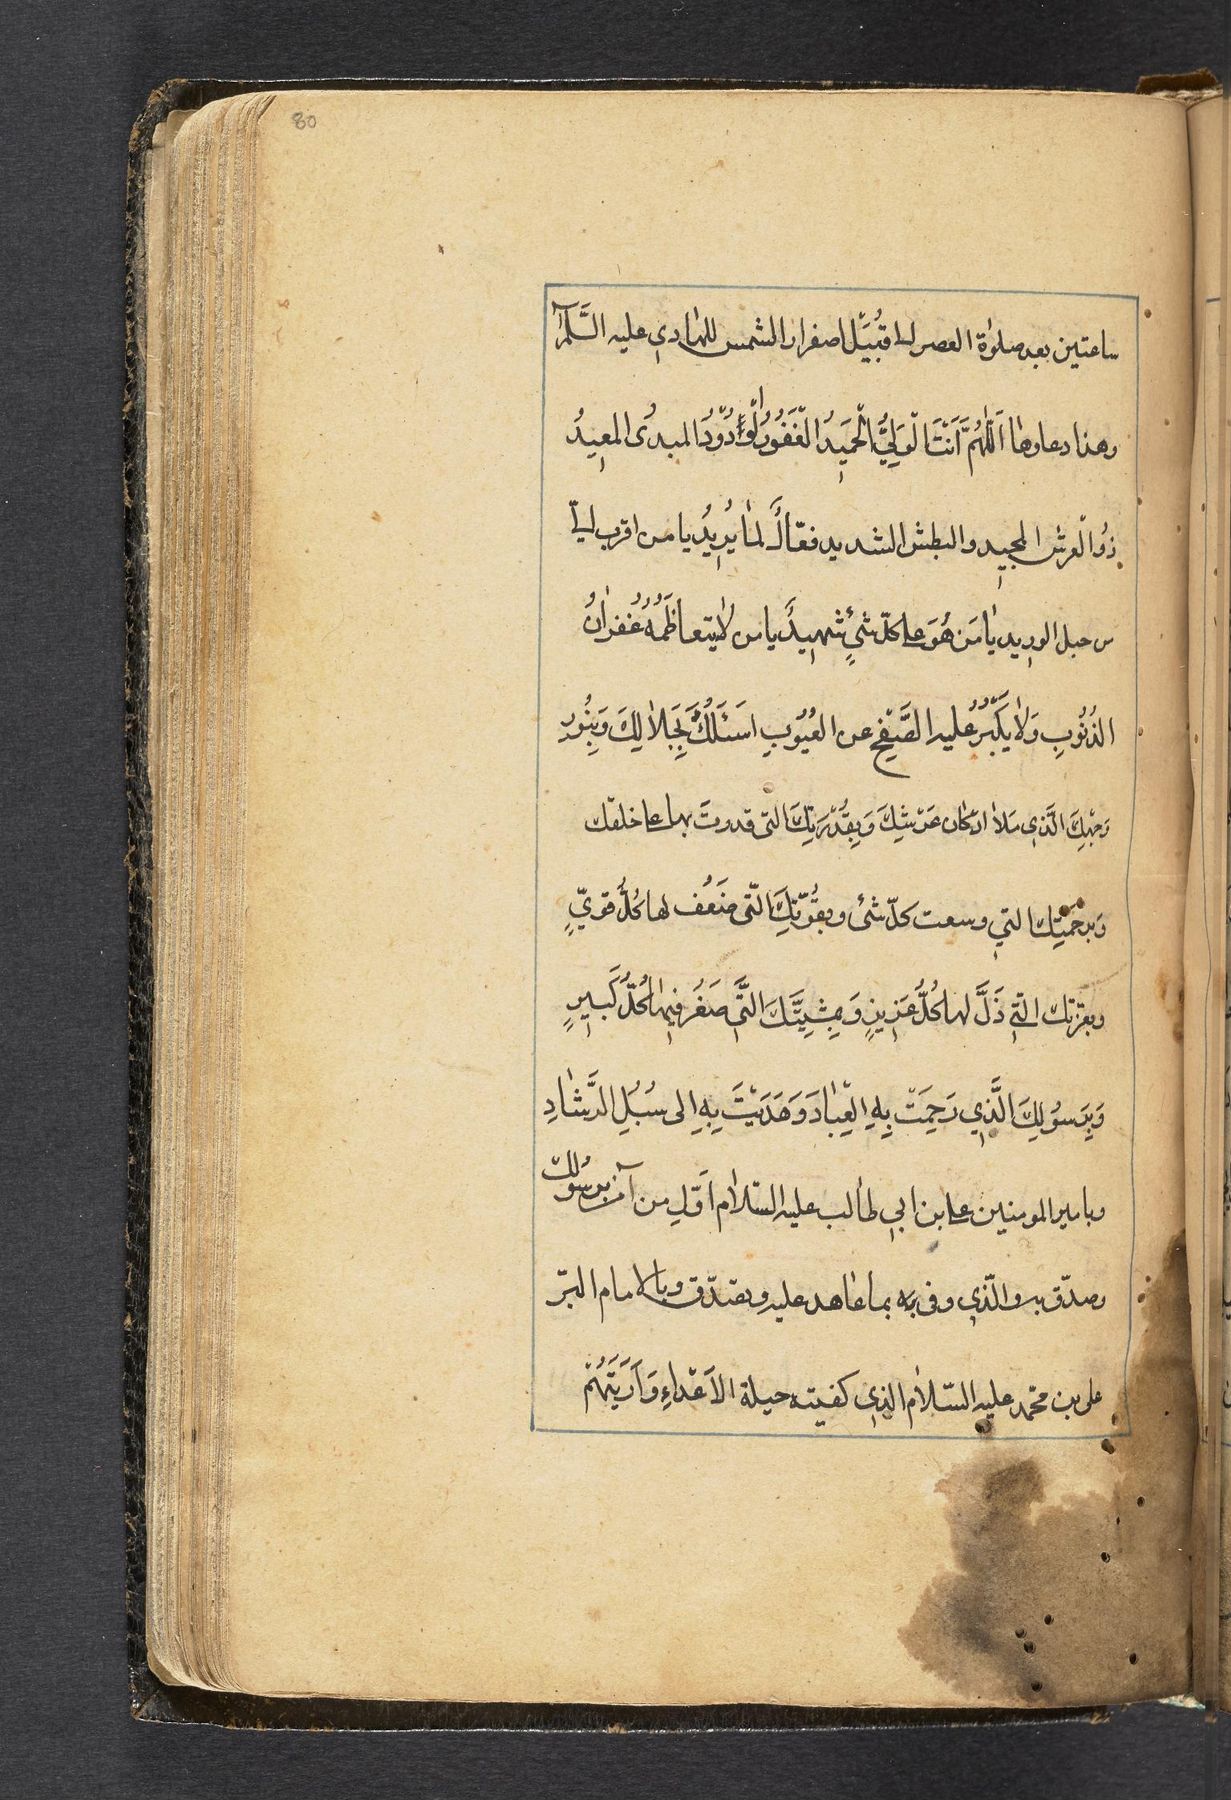 80
ساعتين بعد صلوٰة العصر الى قُبَيْل اصفرار الشمس للهادي عليه السَّلٰم
وهذا دعاوها اَللّٰهُمَّ اَنْتَ الْوَلِيُّ الْحَمِيدُ الْغَفُورُ الْوَدُوْدُ المبدئُ المعِيدُ
ذُوالْعرشِ المجيدِ والبطشِ الشديد فعّالٌ لمٰا يُرِيْدُ يا من اقرب اليّ
من حبل الوريد يٰا مَن هُوَ على كلّ شئٍ شهيدٌ يا من لٰا يتعاظَمُهُ غُفرٰانُ
الذُنُوبِ وَلٰا يَكْبُرُ عليه الصَّفْحُ عن العُيُوبِ اسَئَلُكَ بِجَلاٰلِكَ وَبِنُورِ
وَجْهِكَ الَّذِي مَلاٰ اركٰان عَرْشِكَ وَبِقُدْرَتِكَ التى قدرتَ بها على خلقك
وَبرحمتِكَ التي وسعت كلّ شئ وبقُوّتِكَ الّتى ضَعُف لها كُلُّ قويّ
وبعزتك الّتي ذَلَّ لها كُلُّ عَزِيزٍ وَبِمشِيَّتِكَ الَّتي صَغُرَ فيها كُلُّ كَبيرٍ
وَبِرَسُولِكَ الَّذِي رَحِمْتَ بِهِ الْعِبٰادَ وَهَدَيْتَ بِهِ الى سُبُلِ الرَّشٰادِ
وبامير المومنين على بن ابي طٰالب عليه السّلاٰم اَوّلِ من آمن برسُولك
وصدّق به والّذي وفى به بما عٰاهد عليه وتصدّق وبالامام البَرّ
على بن محمّد عليه السّلاٰم الذي كفيته حيلة الاَعْدٰاءِ وَاَرَيْتَهُمْ